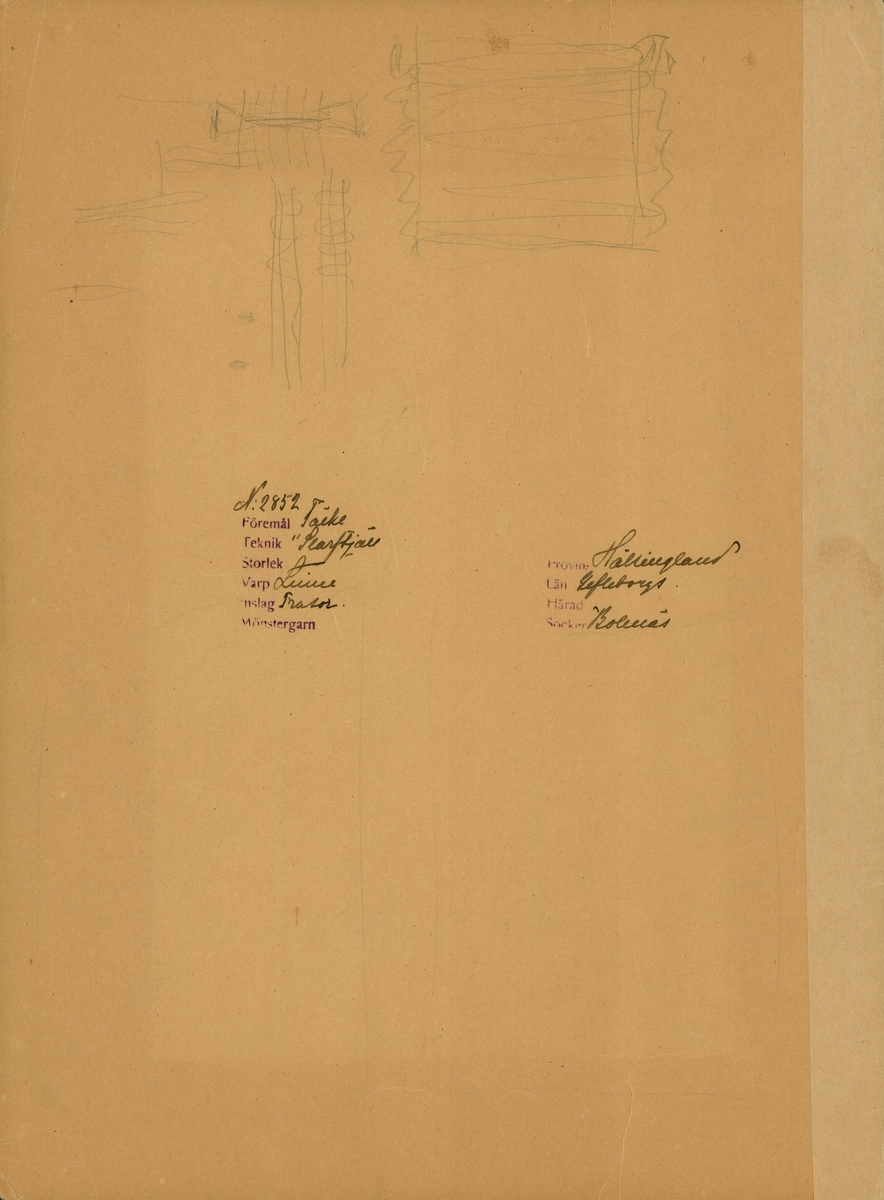 N: 2852
Föremål Täcke
Teknik
Storlek
Varp Linne
nslag Trasor.
Mönstergarn
Provins Hälsingland
Län Gefleborgs.
Härad
Socken Bolnäs